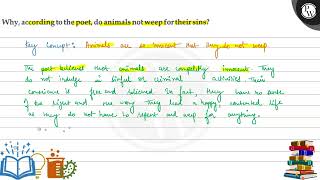 Why, according to the poet, do animals not weep for their sins?
Key Concept: Animals are so innocent that they do not weep
The poet believes that animals are completely innocent. They
do not indulge in sinful or criminal activities. Their
conscience is free and relieved. In fact, they have no sense
of the right and wrong. They lead a happy & contented life
as they do not have to repent and weep for anything.